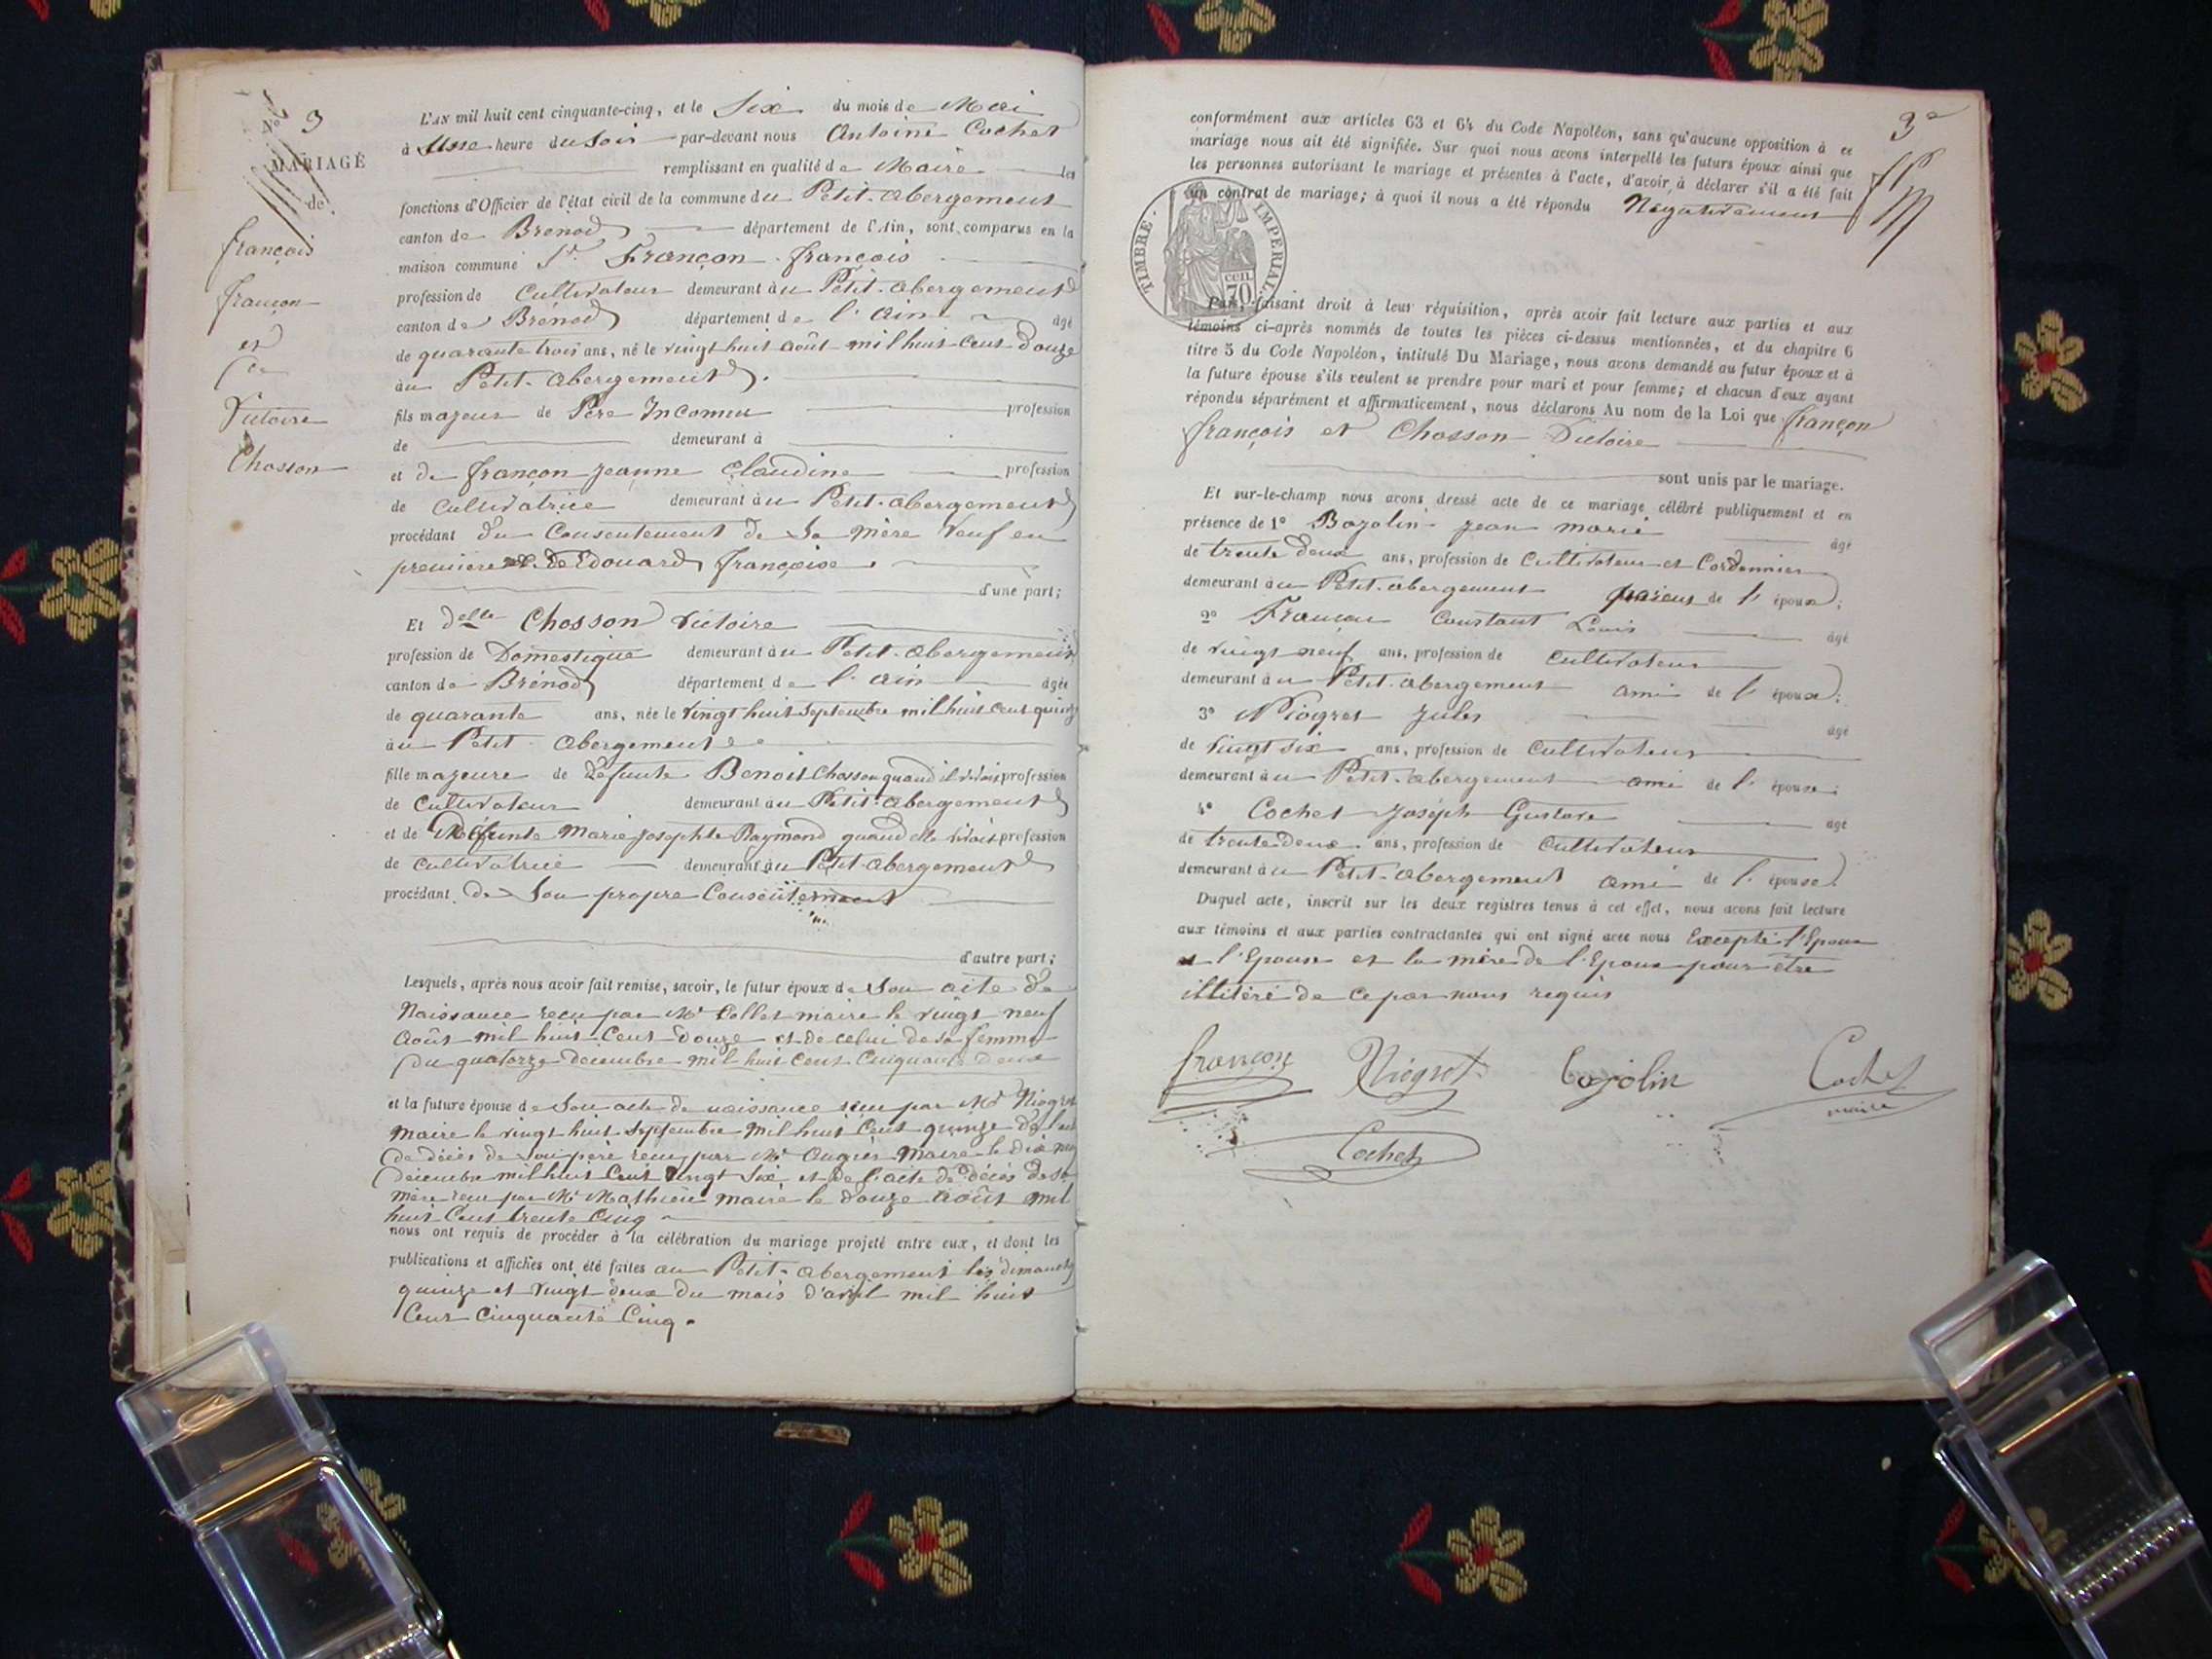 N° 3
MARIAGE
de
François
Françon
et
de
Victoire
Chosson
L'AN mil huit cent cinquante-cinq, et le Six du mois de Mai
à Une heure du Soir par-devant nous Antoine Cochet
remplissant en qualité de Maire les
fonctions d'Officier de l'état civil de la commune du Petit-abergement
canton de Brenod département de l'Ain, sont comparus en la
maison commune Sr. Françon François
profession de Cultivateur demeurant au Petit-abergement
canton de Brenod département de l'ain âgé
de quarante trois ans, né le vingt huit août mil huit cent douze
au Petit-abergement.
fils majeur de Père Inconnu profession
de demeurant à
et de françon jeanne Claudine profession
de Cultivatrice demeurant au Petit-abergement
procédant du Consentement de Sa mère Veuf en
première de Edouard françoise.
d'une part;
Et delle Chosson Victoire
profession de Domestique demeurant au Petit-abergement
canton de Brénod département de l'ain âgée
de quarante ans, née le vingt huit Septembre mil huit Cent quinze
au Petit abergement
fille majeure de défunte Benoit Chosson quand il vivait profession
de Cultivateur demeurant au Petit-abergement
et de Défunte Marie josephte Raymond quand elle vivait profession
de Cultivatrice demeurant au Petit-abergement
procédant de Son propre Consentement
d'autre part;
Lesquels, après nous avoir fait remise, savoir, le futur époux de Son acte de
Naissance reçu par Mr Collet maire le vingt neuf
Août mil huit Cent douze et de celui de sa femme
du quatorze décembre mil huit Cent Cinquante deux
et la future épouse de Son acte de naissance reçu par Mr Niogret
Maire le vingt huit Septembre Mil huit Cent quinze de
de décès de son père reçu par Mr Augier Maire le dix
décembre mil huit Cent vingt Six et de l'acte de décès de sa
mère reçu par Mr Mathieu maire le douze Août mil
huit Cent trente Cinq
nous ont requis de procéder à la célébration du mariage projeté entre eux, et dont les
publications et affiches ont été faites au Petit-abergement les dimanches
quinze et vingt deux du mois d'avril mil huit
Cent Cinquante Cinq.
3
conformément aux articles 63 et 64 du Code Napoléon, sans qu'aucune opposition à ce
mariage nous ait été signifiée. Sur quoi nous avons interpellé les futurs époux ainsi que
les personnes autorisant le mariage et présentes à l'acte, d'avoir à déclarer s'il a été fait
un contrat de mariage; à quoi il nous a été répondu Négativement
TIMBRE IMPERIAL
70 cen
Puis, faisant droit à leur réquisition, après avoir fait lecture aux parties et aux
témoins ci-après nommés de toutes les pièces ci-dessus mentionnées, et du chapitre 6
titre 5 du Code Napoléon, intitulé Du Mariage, nous avons demandé au futur époux et à
la future épouse s'ils veulent se prendre pour mari et pour femme; et chacun d'eux ayant
répondu séparément et affirmativement, nous déclarons Au nom de la Loi que françon
françois et Chosson Victoire
sont unis par le mariage.
Et sur-le-champ nous avons dressé acte de ce mariage célébré publiquement et en
présence de 1° Bozolin jean marie âgé
de trente deux ans, profession de Cultivateur et Cordonnier
demeurant au Petit-abergement parent de l'épouse;
2° Françon Constant Louis âgé
de vingt neuf ans, profession de Cultivateur
demeurant au Petit-abergement ami de l'époux;
3° Niogret jules âgé
de vingt six ans, profession de Cultivateur
demeurant au Petit-abergement ami de l'épouse;
4° Cochet joseph Gustave âgé
de trente deux ans, profession de Cultivateur
demeurant au Petit-abergement ami de l'épouse.
Duquel acte, inscrit sur les deux registres tenus à cet effet, nous avons fait lecture
aux témoins et aux parties contractantes qui ont signé avec nous Excepté l'Epoux
l'Epouse et la mère de l'Epoux pour être
illitéré de ce par nous requis
françon Niogret Bozolin Cochet
maire
Cochet